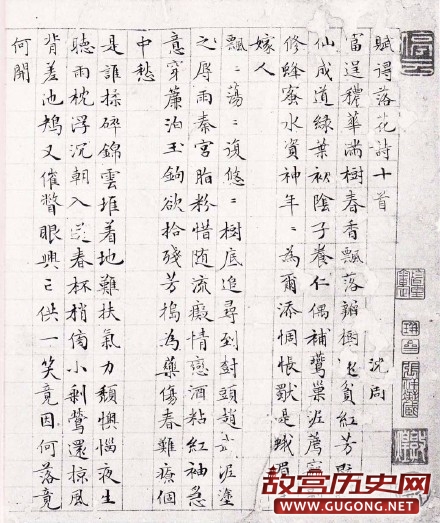 賦得落花詩十首 沈周
富逞穠華滿樹春香飄落瓣樹貧紅芳
仙成道綠葉初陰子養仁偶補鶯巢泥薦
修蜂蜜水資神年〻為爾添惆悵獸是蛾眉
嫁人
飄〻蕩〻復悠〻樹底追尋到對頭趙泥塗
之辱雨秦宮脂粉惜隨流癡情戀酒粘紅袖急
意穿簾泊玉鉤欲拾殘芳搗為藥傷春難療個
中愁
是誰揉碎錦雲堆着地難扶氣力頹懊惱夜生
聽雨枕浮沉朝入送春杯梢傍小剩鶯還掠風
背差池鳦又催瞥眼興亡供一笑竟因何落竟
何開
故宫历史网
www.GUGONG.NET